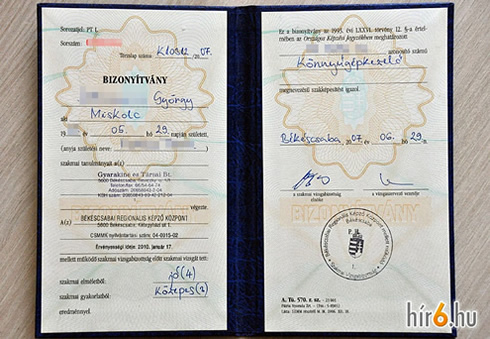 Sorozatjel: PT I.
Sorszám:
Törzslap száma: 07.
BIZONYÍTVÁNY
György
aki Miskolc
19 év 05. hó 29. napján született,
(anyja születési neve:
szakmai tanulmányait a(z)
Gyaraki és Társai Bt.
5600 Békéscsaba,
végezte.
A(z) BÉKÉSCSABAI REGIONÁLIS KÉPZŐ KÖZPONT
5600 Békéscsaba, Kétegyházi út 1.
CSMMK nyilvántartási szám: 04-0015-02
Érvényességi ideje: 2010. január 17.
mellett működő szakmai vizsgabizottság előtt szakmai vizsgát tett:
szakmai elméletből: jó (4)
szakmai gyakorlatból: közepes (3)
eredménnyel.
Ez a bizonyítvány az 1993. évi LXXVI. törvény 12. §-a értel-
mében az Országos Képzési Jegyzékben meghatározott
azonosító számú
Könnyűgépkezelő
megnevezésű szakképesítést igazol.
Békéscsaba, 2007 06. 29.
a szakmai vizsgabizottság
elnöke
a vizsgaszervezet vezetője
BIZONYÍTVÁNY
Békéscsabai Regionális Képző Központ mellett működő
Szakmai Vizsgabizottság
Békéscsaba
P. H.
1.
A. Tü. 570. r. sz.
hír6.hu